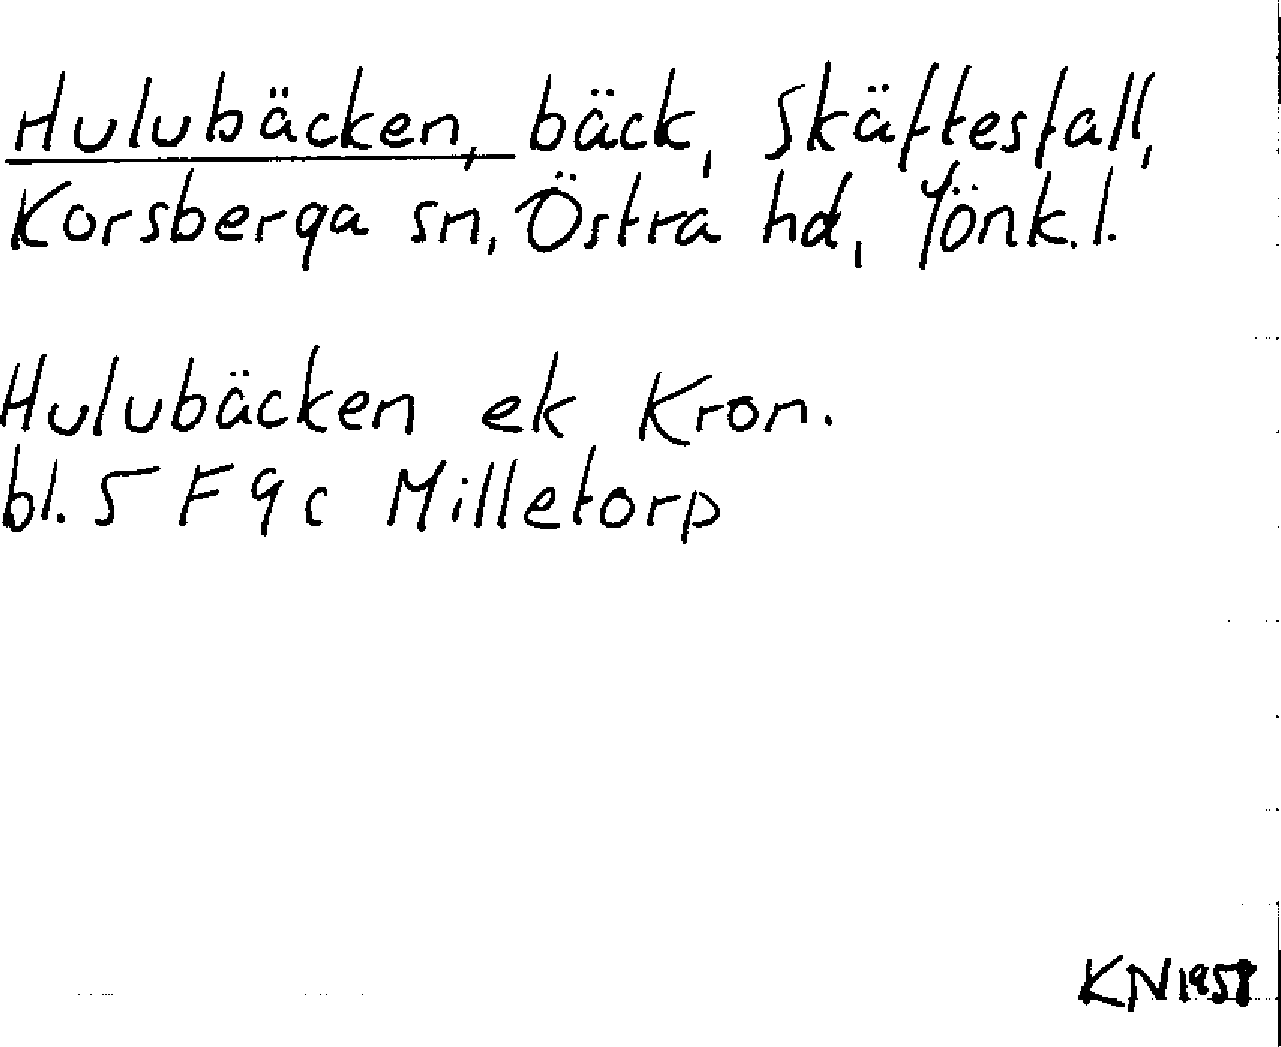 Hulubäcken, bäck, Skäftesfall,
Korsberga sn, Östra hd, Jönk.l.
Hulubäcken ek Kron.
bl. 5 F 9 c Milletorp
KN